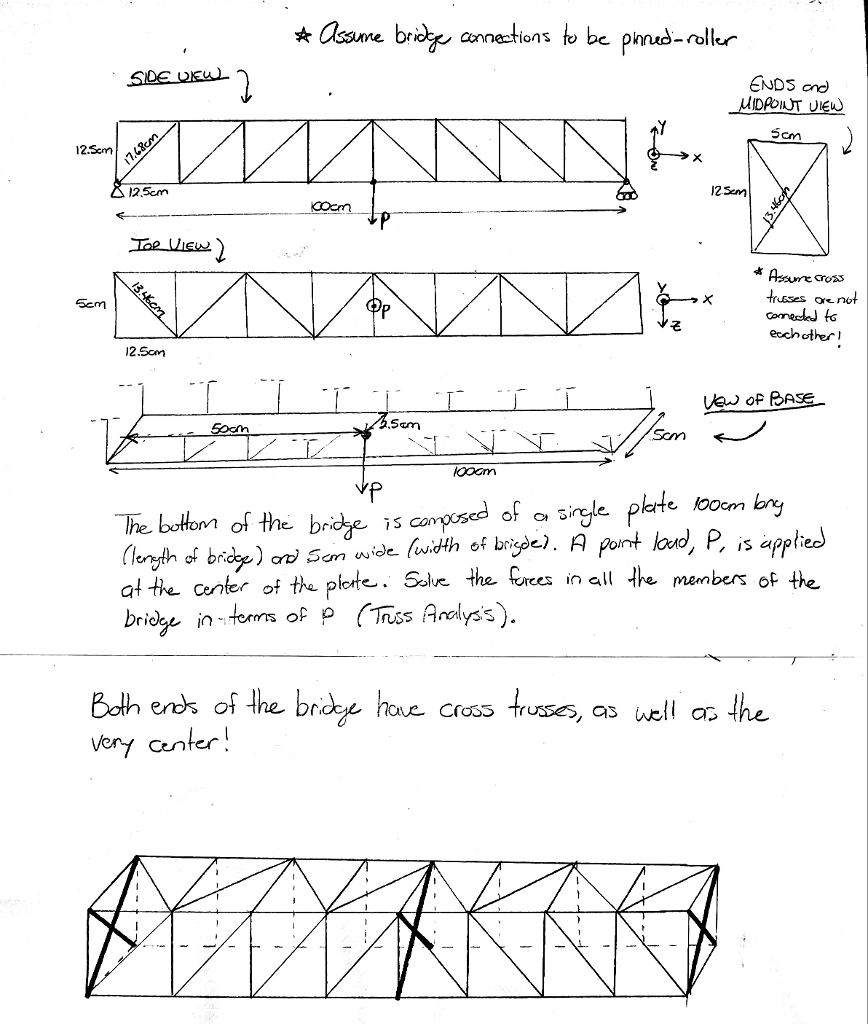 * Assume bridge connections to be pinned-roller
SIDE VIEW
ENDS and
MIDPOINT VIEW
5cm
12.5cm
17.68cm
Y
X
Z
12.5cm
13.46cm
12.5cm
100cm
P
TOP VIEW
* Assume cross
trusses are not
connected to
each other!
5cm
13.46cm
P
Y
X
Z
12.5cm
VIEW OF BASE
50cm
2.5cm
5cm
100cm
P
The bottom of the bridge is composed of a single plate 100cm long
(length of bridge) and 5cm wide (width of brigde). A point load, P, is applied
at the center of the plate. Solve the forces in all the members of the
bridge in terms of P (Truss Analysis).
Both ends of the bridge have cross trusses, as well as the
very center!